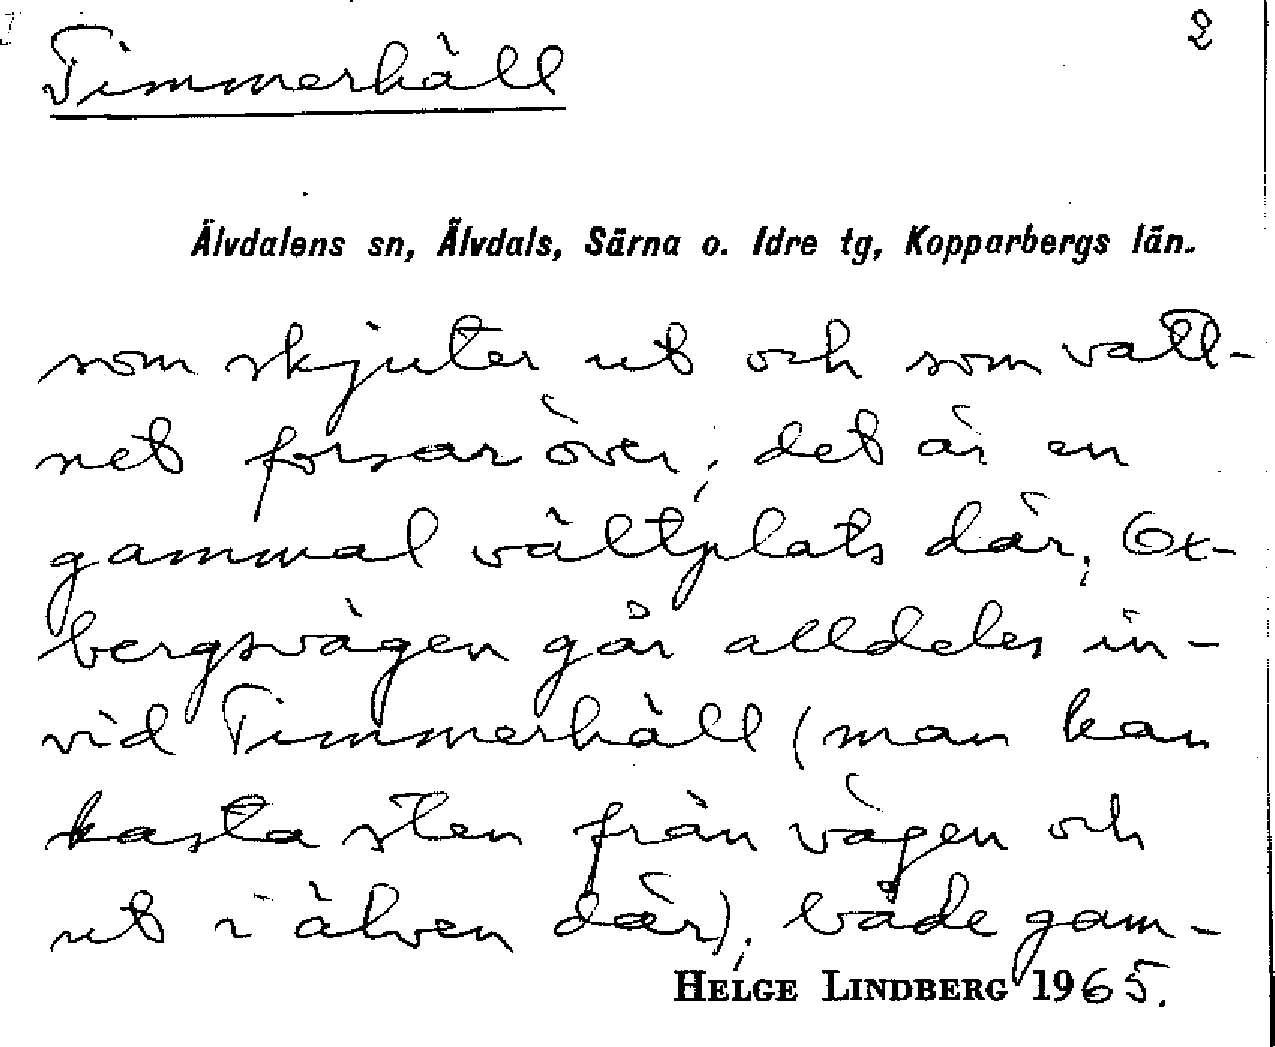 2
Timmerhäll
Älvdalens sn, Älvdals, Särna o. Idre tg, Kopparbergs län.
som skjuter ut och som vatt-
net forsar över; det är en
gammal vältplats där; Ox-
bergsvägen går alldeles in-
vid Timmerhäll (man kan
kasta sten från vägen och
ut i älven där); både gam-
HELGE LINDBERG 1965.